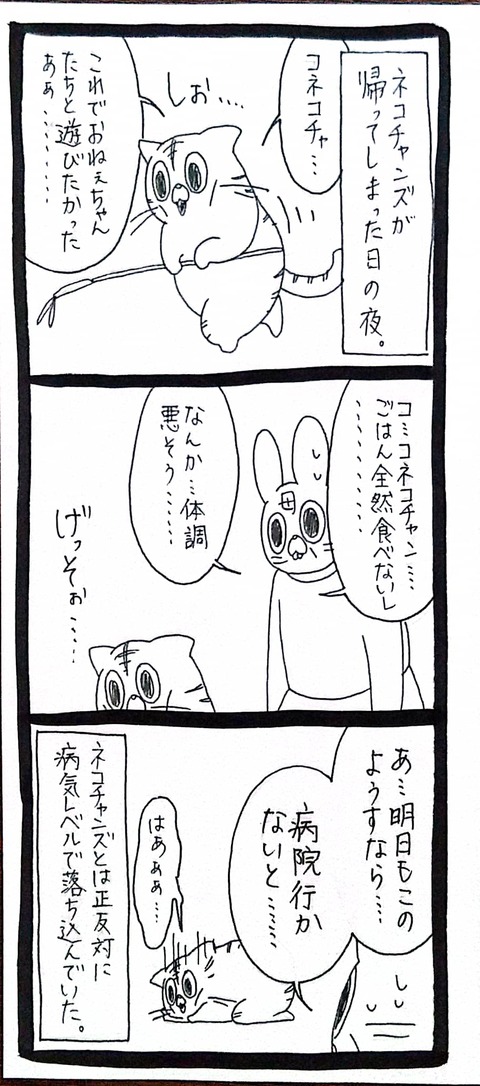 ネコチャンズが
帰ってしまった日の夜。
コネコチャ…
しお‥‥
これでおねぇちゃん
たちと遊びたかった
ああ………
コミコネコチャン……
ごはん全然食べないし
………
母
なんか…体調
悪そう……
げっそぉ……
あ…明日もこの
ようすなら……
病院行か
ないと……
はあぁぁ…
ネコチャンズとは正反対に
病気レベルで落ち込んでいた。